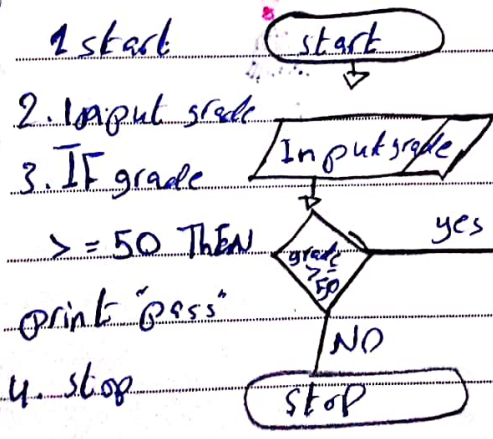 1 start
2. Input grade
3. IF grade
>= 50 THEN
print "pass"
4. stop
start
Input grade
grade
>=
50
yes
NO
stop